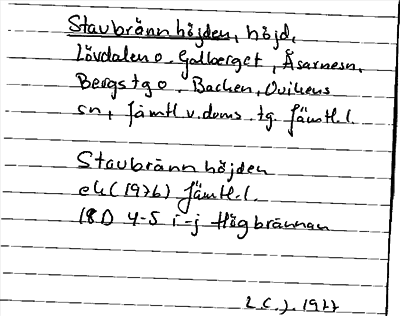 Staubrännhöjden, höjd,
Lövdalen o. Galberget, Åsarnesn,
Bergs tg o. Backen, Ovikens
sn, Jämtl. v. doms. tg Jämtl. l.
Staubrännhöjden
ek (1976) Jämtl. l.
18D 4-5 i-j Högbrännan
1977